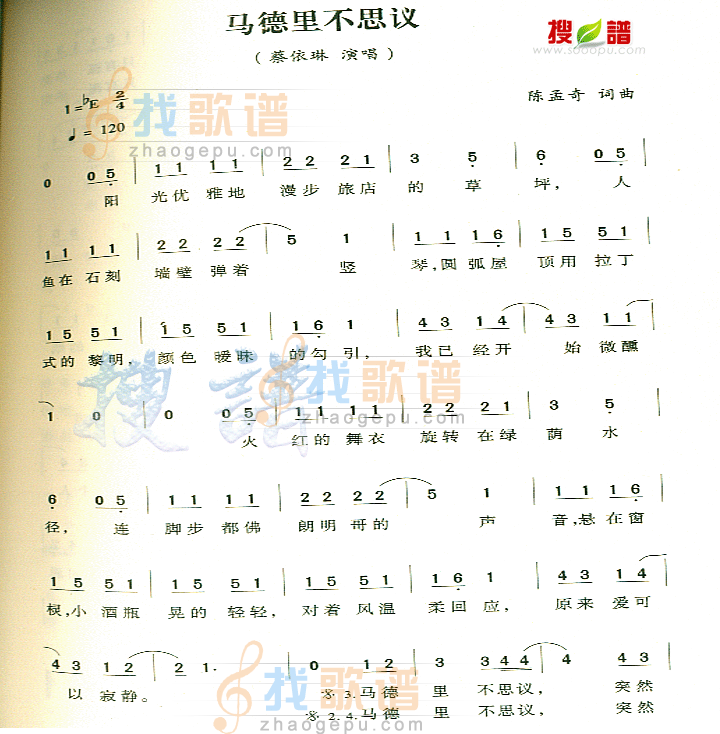 马德里不思议
搜譜
www.sooopu.com
(蔡依琳 演唱)
1=♭E 2/4
陈孟奇 词曲
♩=120
找歌谱
zhaogepu.com
0 05 | 11 11 | 22 21 | 3 5 | 6 05 |
阳 光优 雅地 漫步 旅店 的 草 坪, 人
11 11 | 22 22 | 5 1 | 11 16 | 15 51 |
鱼在 石刻 墙壁 弹着 竖 琴,圆 弧屋 顶用 拉丁
15 51 | 15 51 | 16 1 | 43 14 | 43 11 |
式的 黎明, 颜色 暧昧 的勾 引, 我已 经开 始 微醺
搜譜
找歌谱
zhaogepu.com
1 0 | 0 05 | 11 11 | 22 21 | 3 5 |
火 红的 舞衣 旋转 在绿 荫 水
6 05 | 11 11 | 22 22 | 5 1 | 11 16 |
径, 连 脚步 都佛 朗明 哥的 声 音,悬 在窗
15 51 | 15 51 | 15 51 | 16 1 | 43 14 |
棂,小 酒瓶 晃的 轻轻, 对着 风温 柔回 应, 原来 爱可
43 12 | 21. | 0 012 | 3 344 | 4 034 |
以 寂静。 3.马德 里 不思议, 突然
2.4.马德 里 不思议, 突然
找歌谱
zhaogepu.com